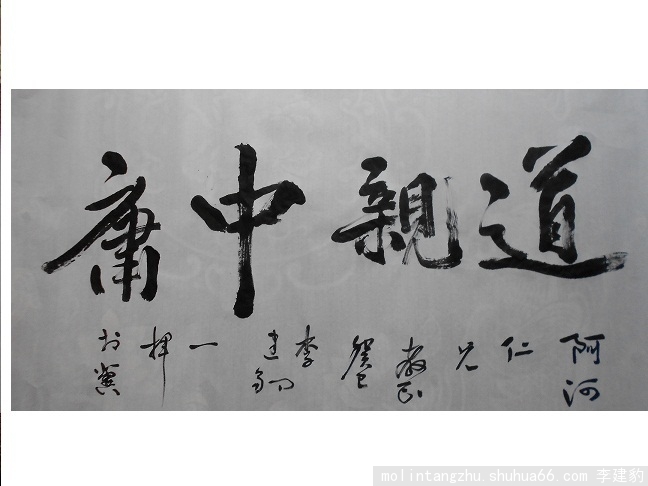 道親中庸
阿河仁兄教正癸巳李建豹一揮於冀
molintangzhu.shuhua66.com 李建豹